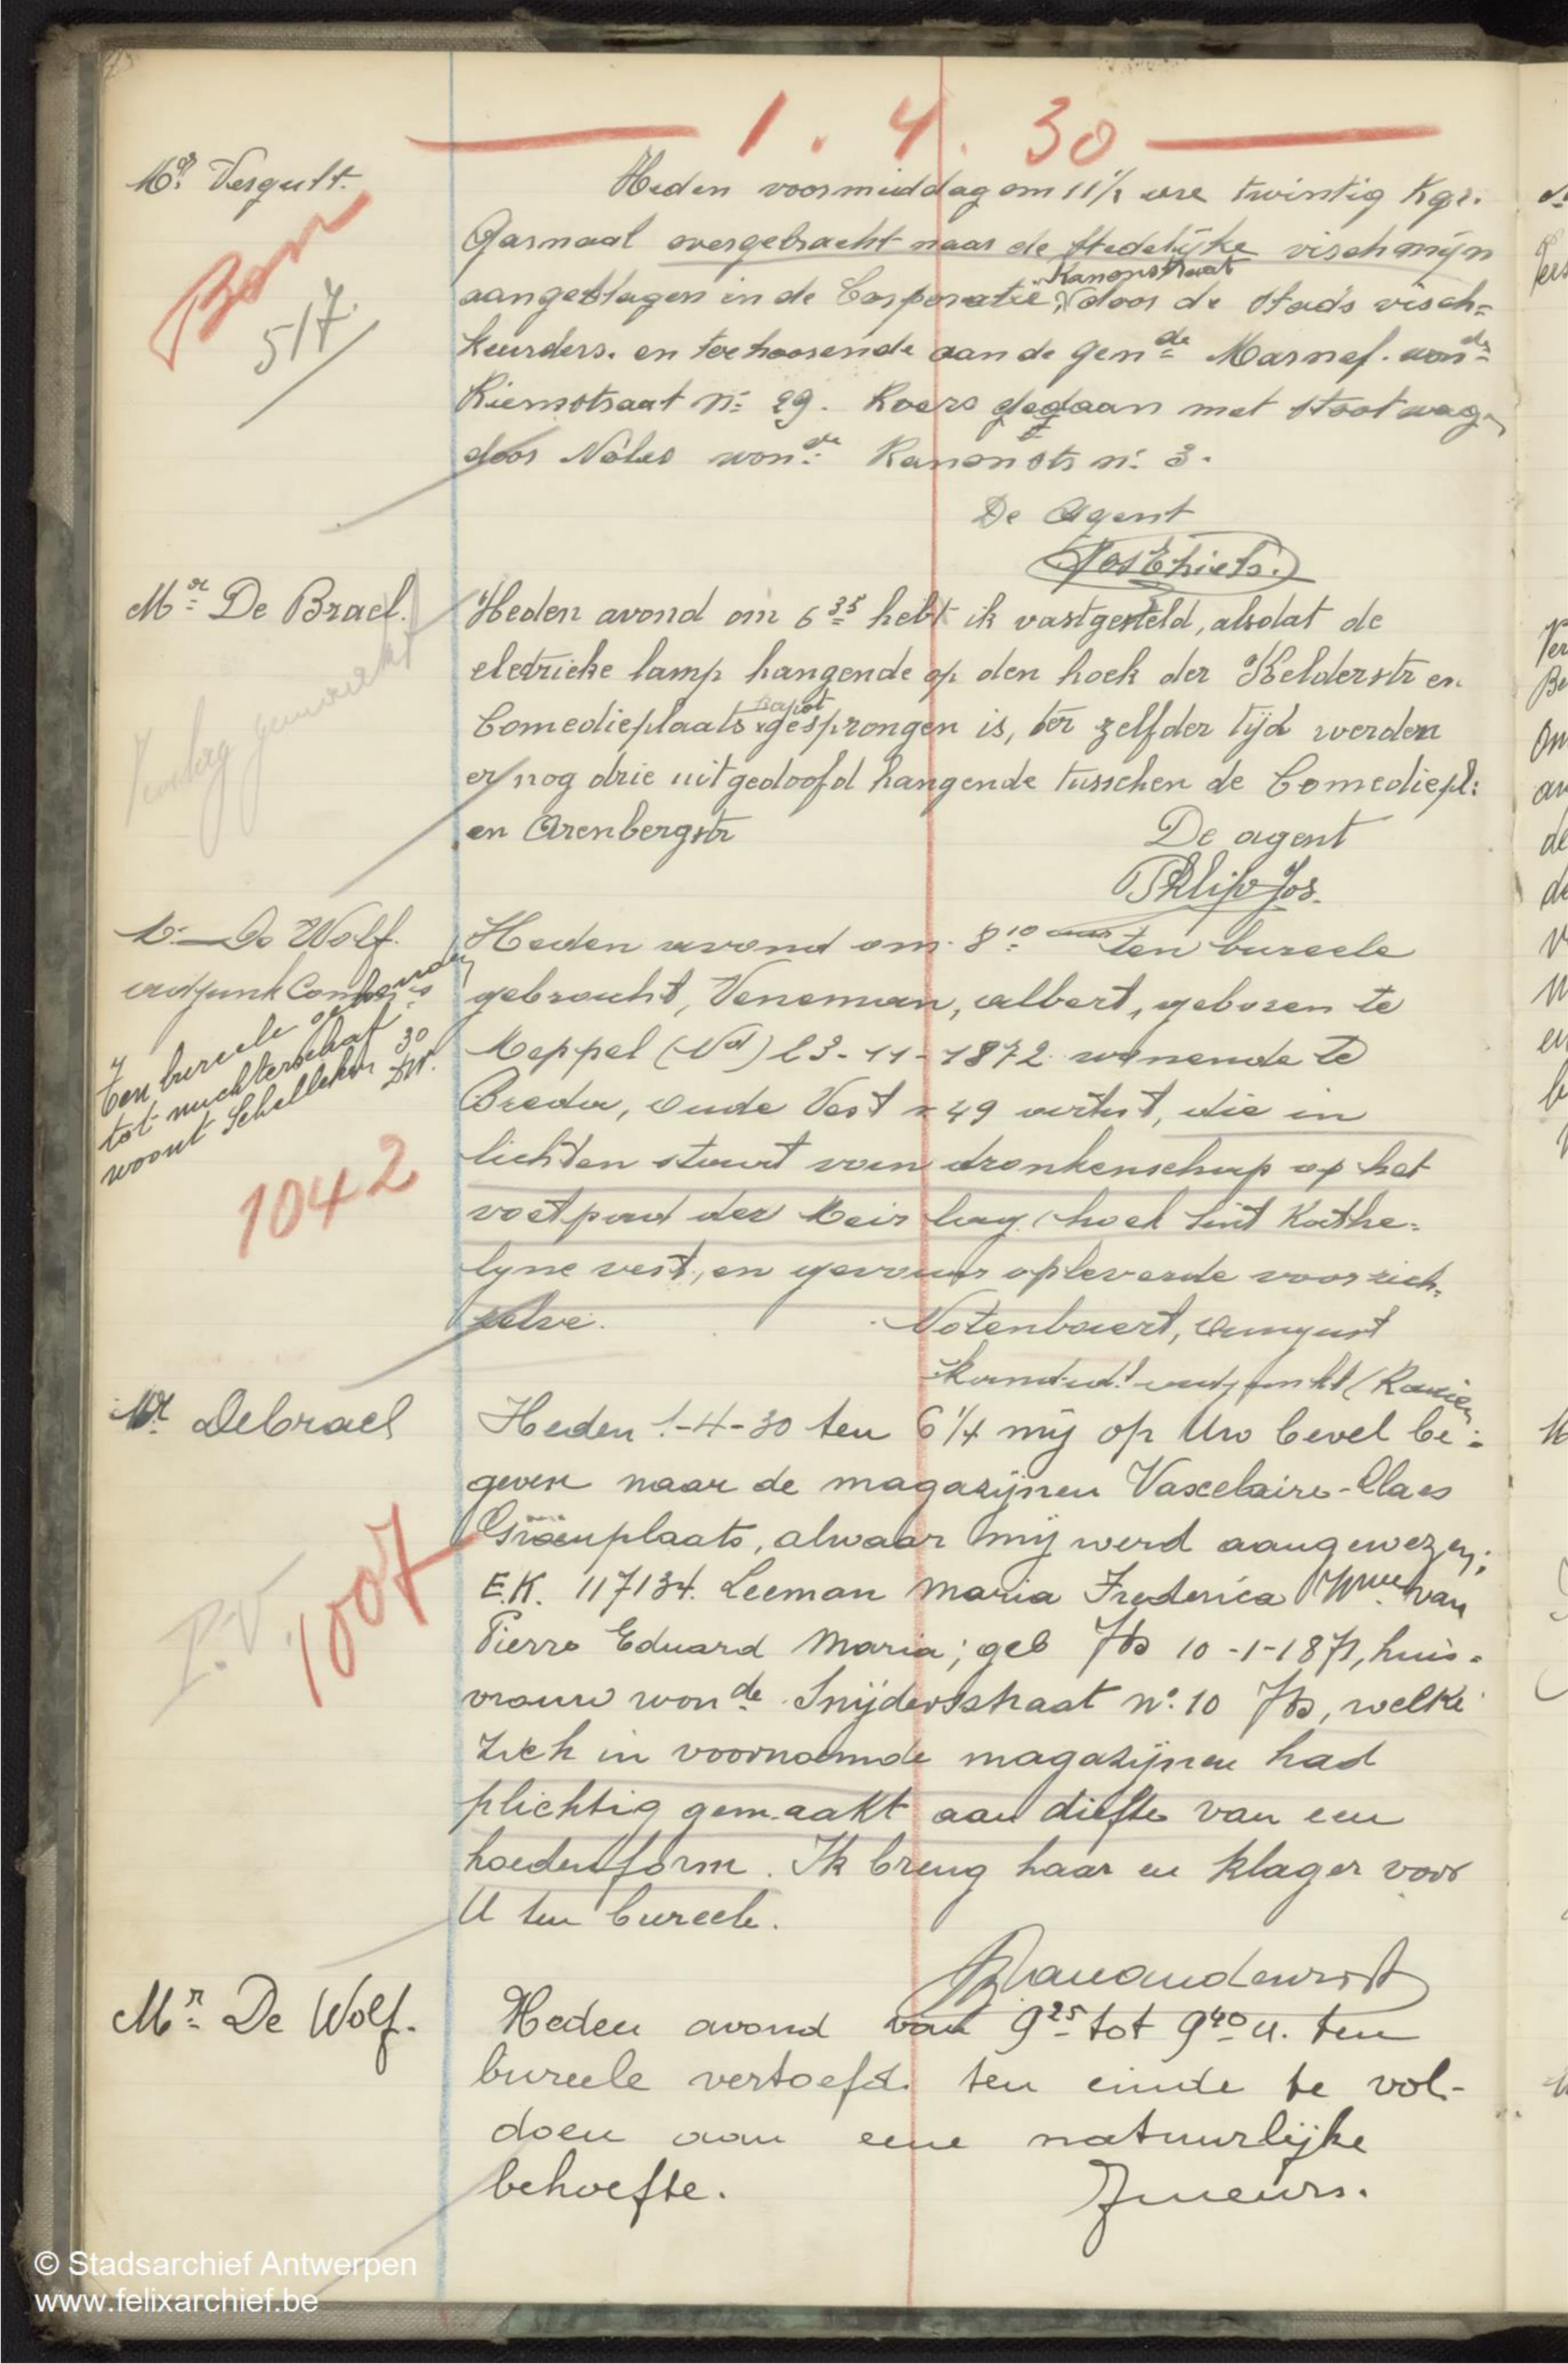 1. 4. 30
Mr Vergult.
Bon
517.
Heden voormiddag om 11½ ure twintig Kgr.
Garnaal overgebracht naar de stedelijke vischmijn
aangeslagen in de Corporatie, Kanonstraat door de stads visch=
keurders. en toehoorende aan de gende Marnef. wonde
Riemstraat n= 29. Koers gedaan met stootwag.
door Noles wonde Kanonstr n= 3.
De Agent
Mr De Brael.
Verslag gemaakt
Heden avond om 6 35 hebt ik vastgesteld, alsdat de
eletrieke lamp hangende op den hoek der Kelderstr en
Comedieplaats kapot gesprongen is, ter zelfder tijd werden
er nog drie uitgedoofd hangende tusschen de Comediepl:
en Arenbergstr
De agent
Philip Jos.
De Wolf.
adjunk Comis
Ten bureele gehouden
tot nuchterschat
woont Schelleken 30
DW.
1042
Heden avond om 8 10 ten bureele
gebracht, Veneman, albert, geboren te
Meppel (Nd) 23-11-1872 wonende te
Breda, oude Vest n 49 artist, die in
lichten staat van dronkenschap op het
voetpad der Meir lag (hoek sint Kathe=
lyne vest, en gevaar opleverde voor zich=
zelve.
Notenbaert, august
kandid! adjunkt (
Mr Debrael
P.V
1007
Heden 1-4-30 ten 6¼ mij op Uw bevel be=
geven naar de magazijnen Vaxelaire-Claes
Groenplaats, alwaar mij werd aangewezen;
E.K. 117134. Leeman Maria Frederica van
Pierre Eduard Maria; geb 10-1-1871, huis=
vrouw wonde Snijdersstraat n° 10, welke
zich in voornoemde magazijnen had
plichtig gemaakt aan diefte van een
hoedenform. Ik breng haar en klager voor
U ten bureele.
Mr De Wolf.
Heden avond van 9 25 tot 9 40 u. ten
bureele vertoefd ten einde te vol-
doen aan eene natuurlijke
behoefte.
© Stadsarchief Antwerpen
www.felixarchief.be